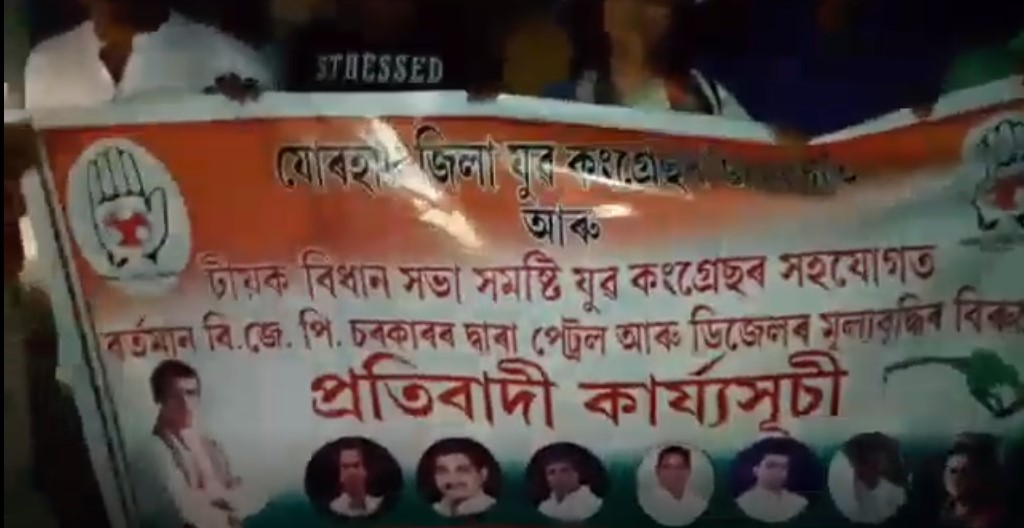 STUESSED
যোৰহাট জিলা যুৱ কংগ্ৰেছৰ
আৰু
টীয়ক বিধান সভা সমষ্টি যুৱ কংগ্ৰেছৰ সহযোগত
বৰ্তমান বি.জে. পি. চৰকাৰৰ দ্বাৰা পেট্ৰল আৰু ডিজেলৰ মূল্যবৃদ্ধিৰ
প্ৰতিবাদী কাৰ্য্যসূচী